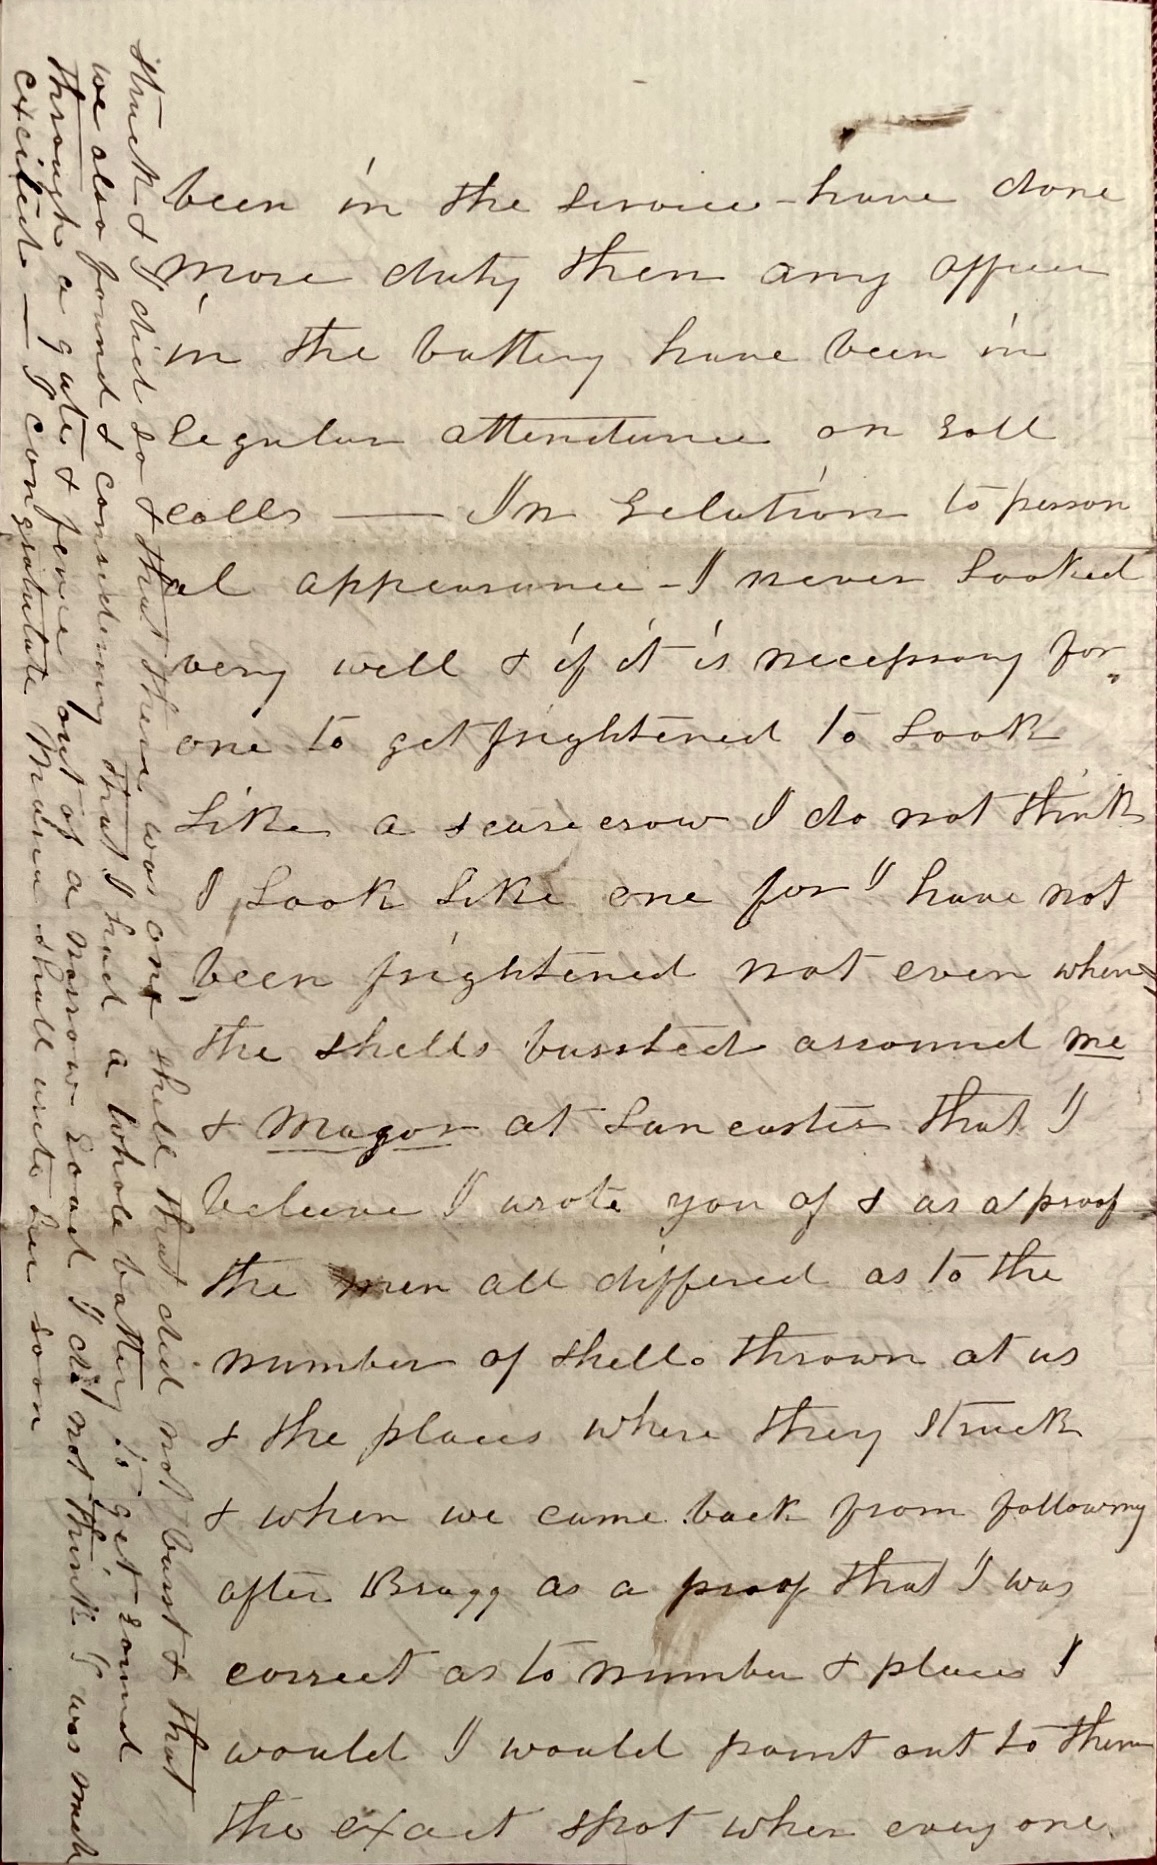 been in the service - have done
more duty then any officer
in the battery have been in
regular attendance on roll
calls — In relation to person
al appearance - I never looked
very well & if it is necessary for
one to get frightened to look
like a scare crow I do not think
I look like one for I have not
been frightened not even when
the shells bursted arround me
& Magor at Lancaster that I
beleeve I wrote you of & as a proof
the men all differed as to the
number of shells thrown at us
& the places where they struck
& when we came back from following
after Bragg as a proof that I was
correct as to number & places I
would I would point out to them
the exact spot wher every one
struck & I did so & that there was one shell that did not burst & that
we also found & considering that I had a whole battery to get round
through a gate & fence out of a narrow road I did not think I was much
excited — I congratulate Mama shall write her soon